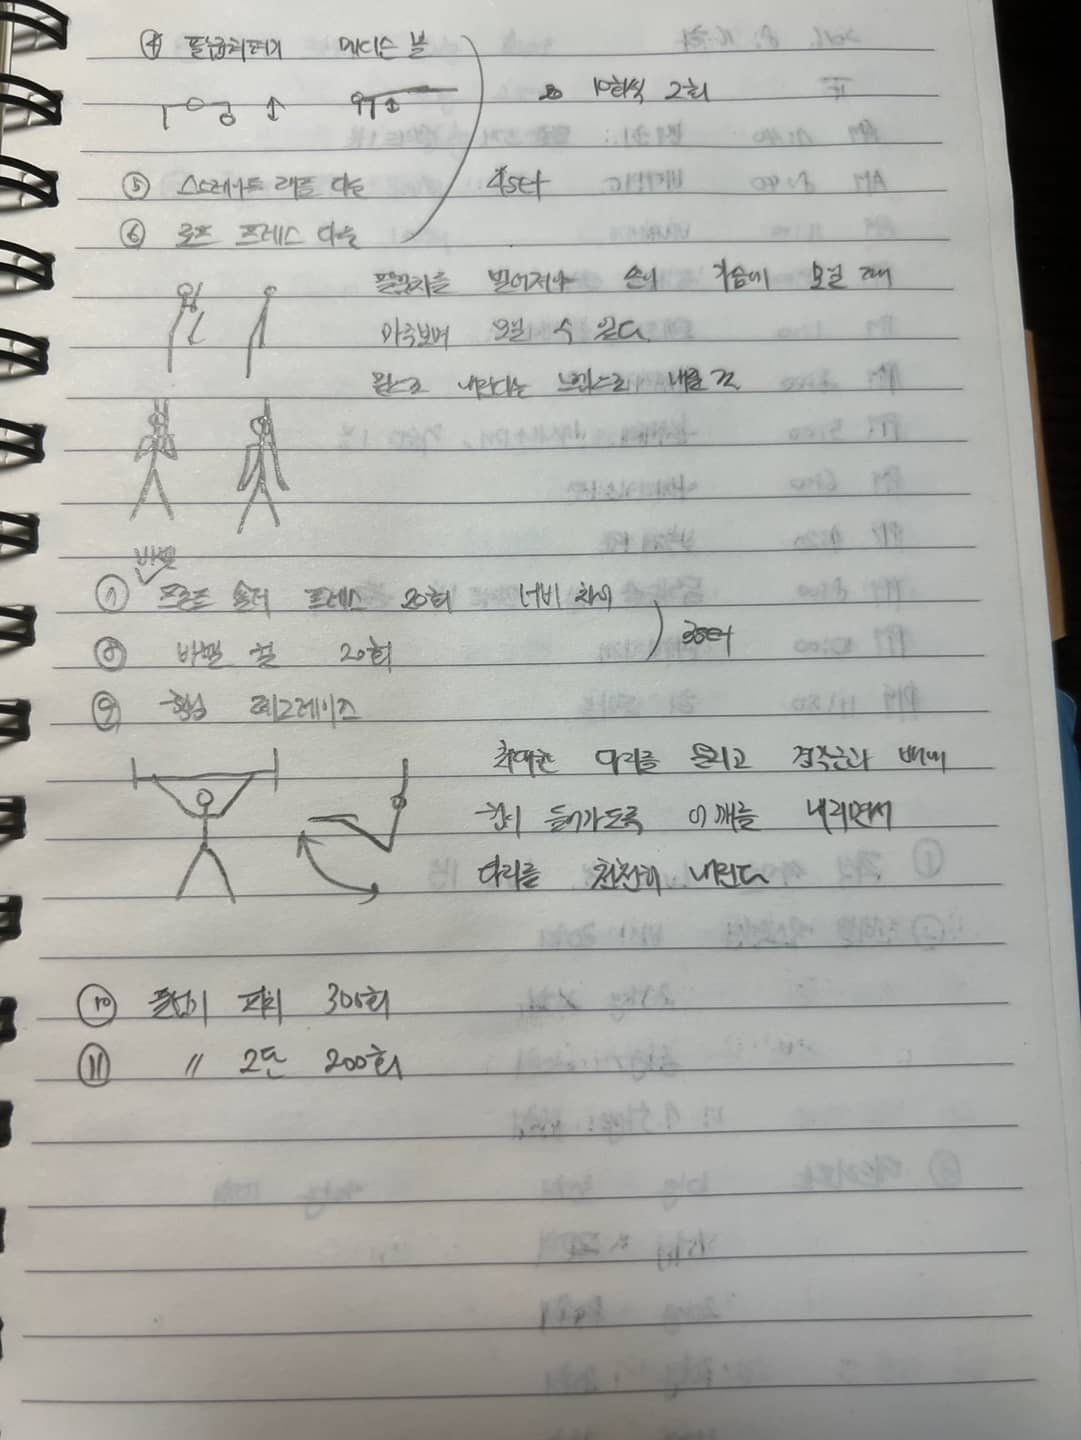 ④ 팔굽혀펴기 메디슨 볼
10회씩 2회
⑤ 스트레이트 래플 다슬 4set
⑥ 로프 프레스 다슬
팔꿈치를 벌어져나 손이 가슴에 모일 때
마주보며 모일 수 있다
원으로 내린다는 느낌으로 내릴 것
바벨
⑦ 프론트 숄더 프레스 20회 너비 차이
⑧ 바벨 컬 20회 3set
⑨ 행잉 레그레이즈
최대한 다리를 올리고 광배근과 배에
힘이 들어가도록 어깨를 내리면서
다리를 천천히 내린다
⑩ 줄넘기 피치 300회
⑪ 〃 2단 200회